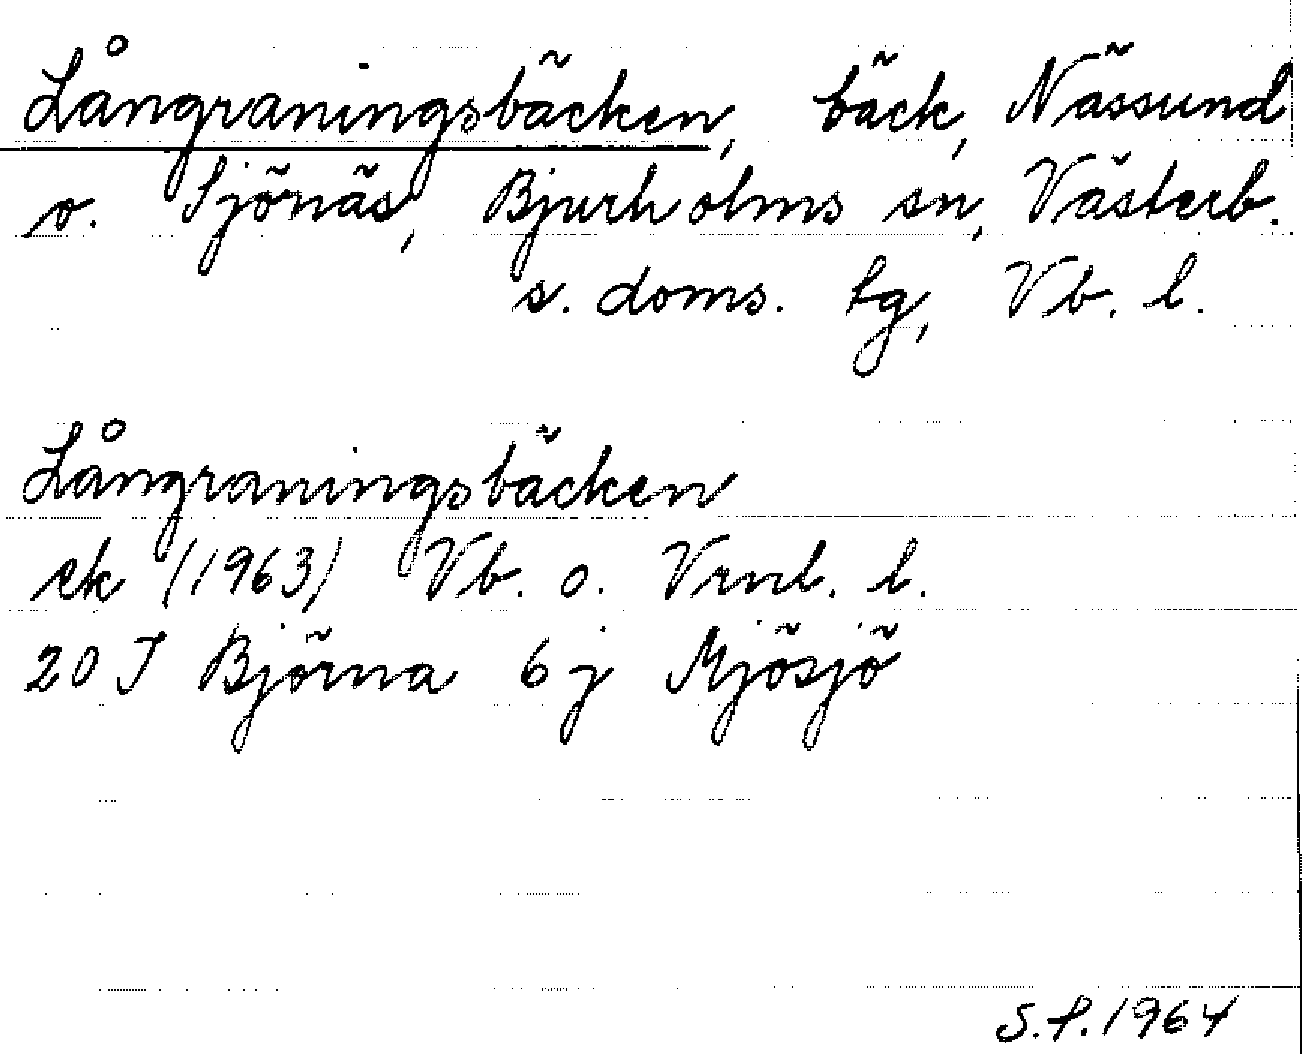 Långraningsbäcken, bäck, Nässund
o. Sjönäs, Bjurholms sn, Västerb.
s. doms. tg, Vb. l.
Långraningsbäcken
ek (1963) Vb. o. Vrnl. l.
20 I Björna 6 j Mjösjö
S.P. 1964